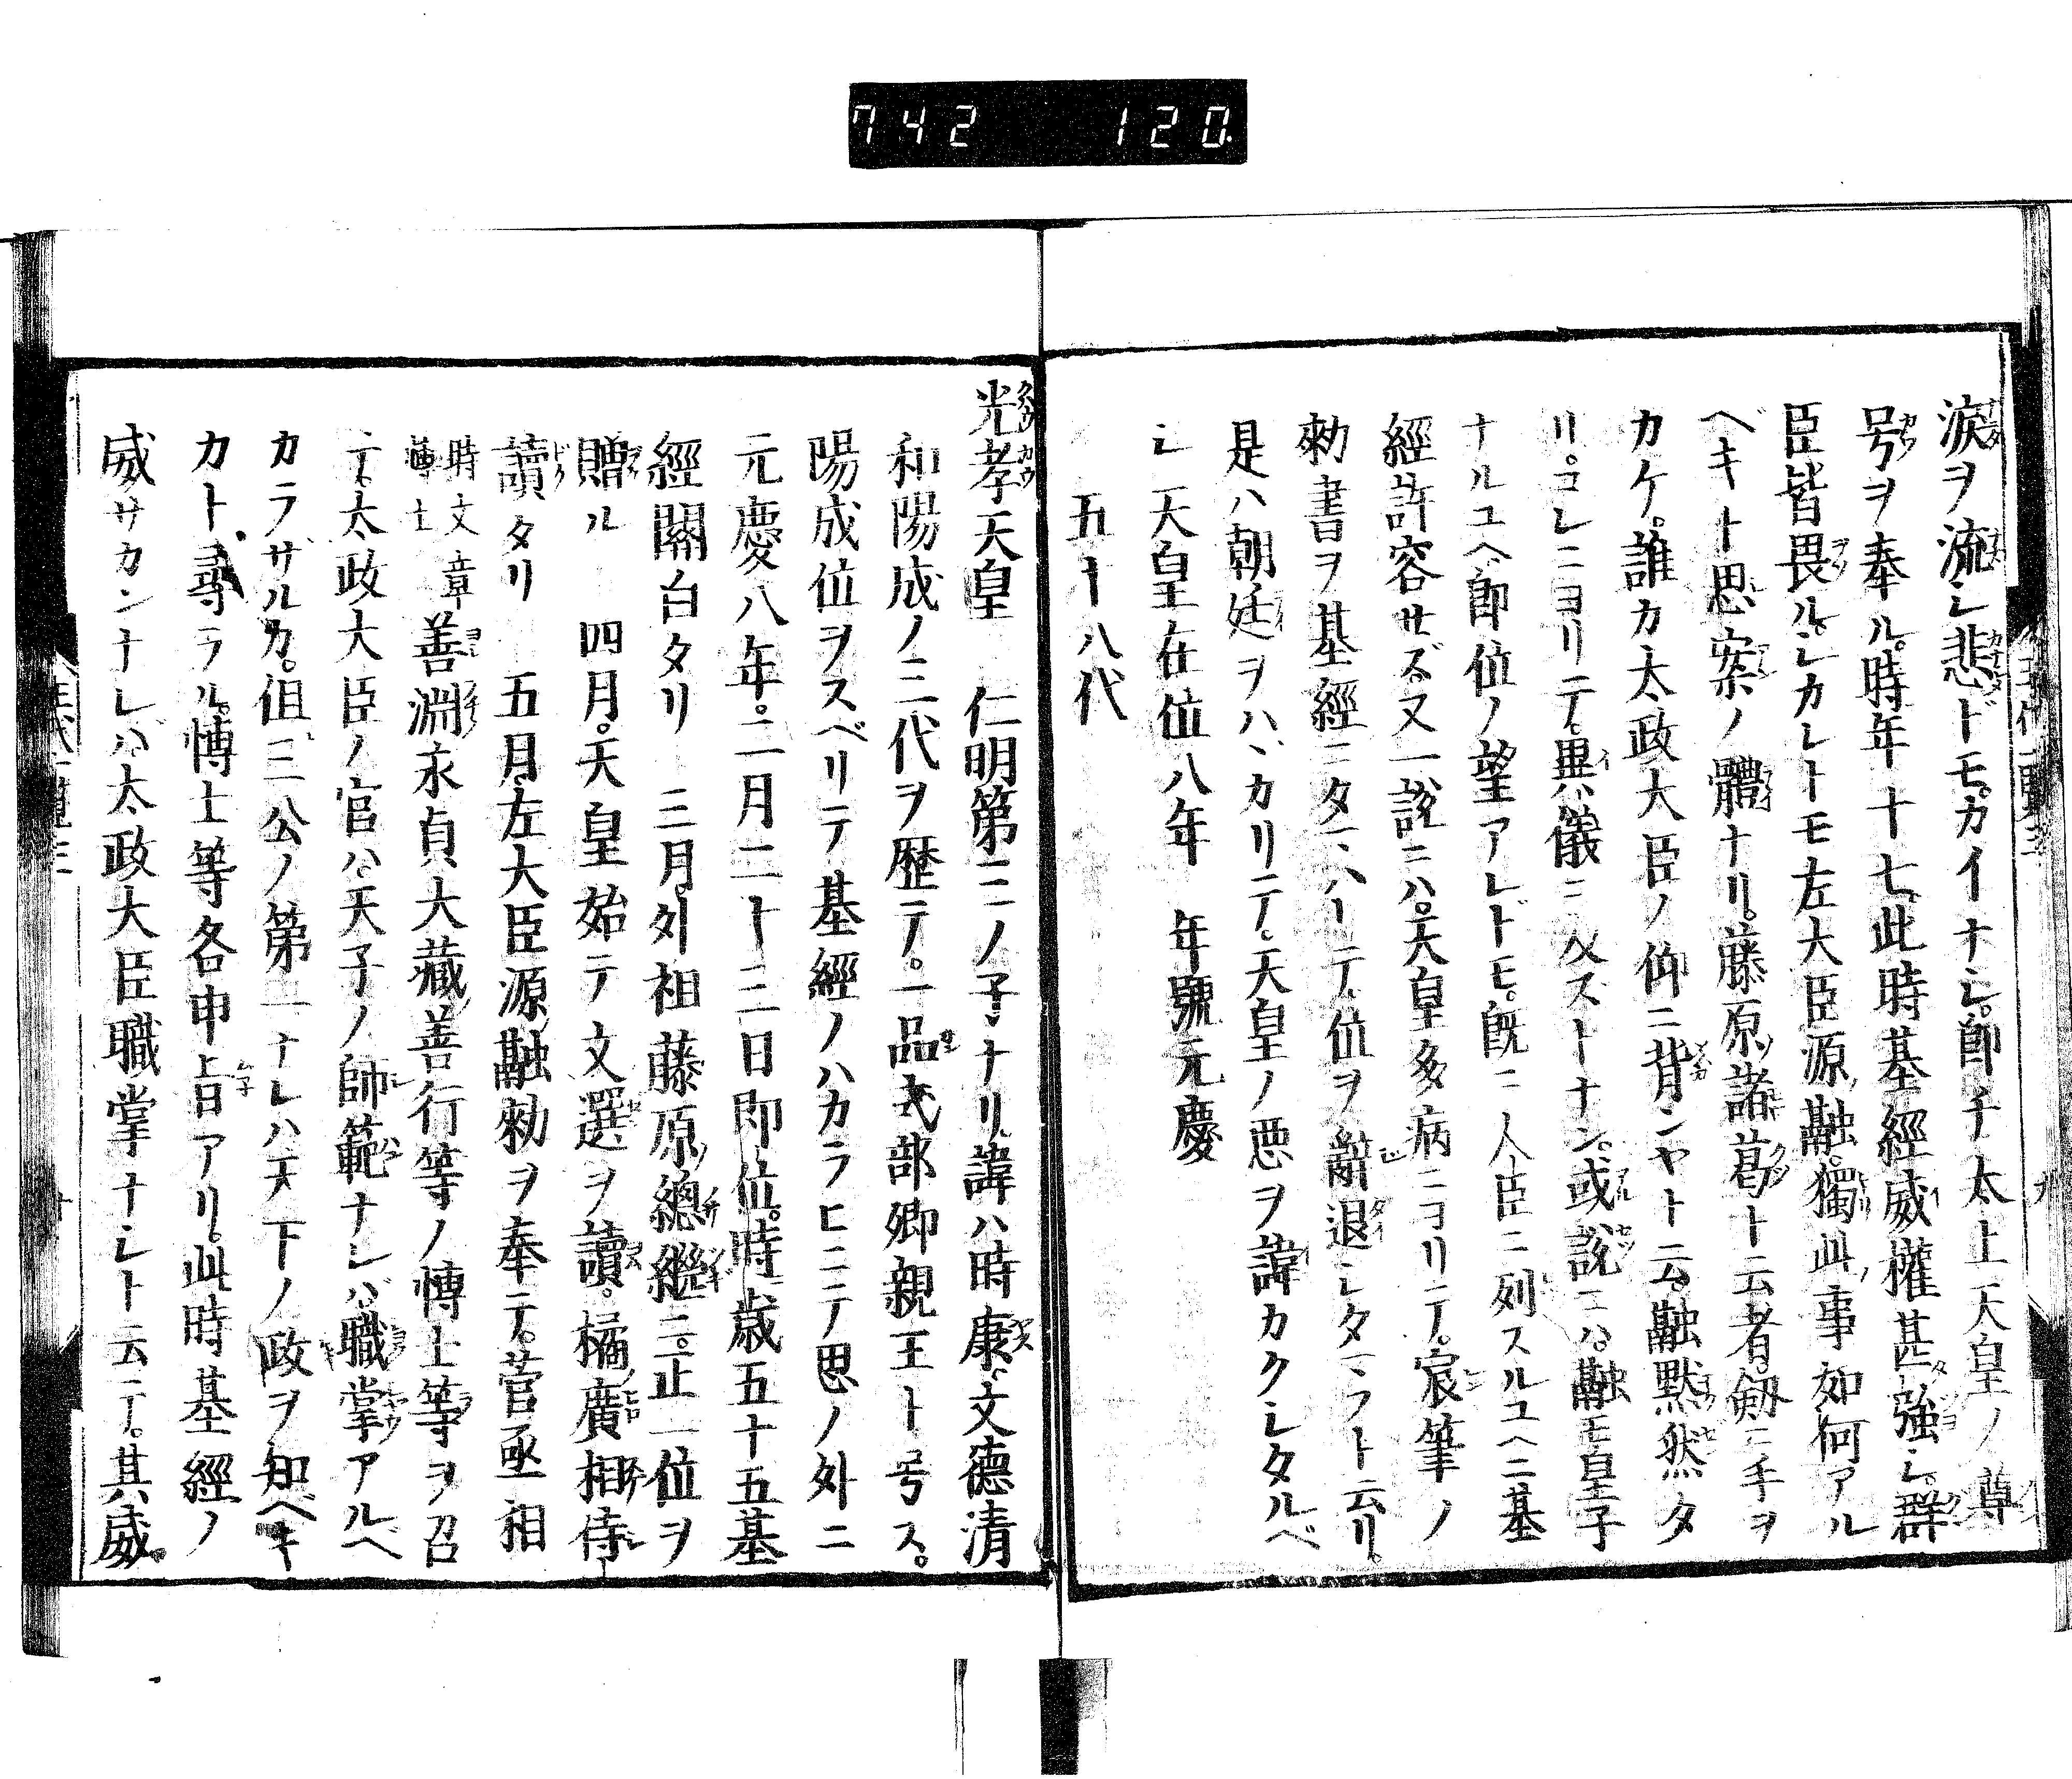 742 120
涙ヲ流シ悲ドモ。カイナシ。卽チ太上天皇ノ尊
号ヲ奉ル。時年十七。此時基經威權甚強シ。群
臣皆畏ル。シカレトモ左大臣源融。獨此事如何アル
ベキト思案ノ體ナリ。藤原諸葛ト云者。劔ニ手ヲ
カケ。誰カ太政大臣ノ仰ニ背ンヤト云。融默然タ
リ。コレニヨリテ。異儀ニ及ストナン。或說ニハ。融モ皇子
ナルユヘ卽位ノ望アレドモ。旣ニ人臣ニ列スルユヘニ基
經許容セズ。又一說ニハ。天皇多病ニヨリテ。宸筆ノ
勅書ヲ基經ニタマハリテ。位ヲ辭退シタマフト云リ。
是ハ朝廷ヲハヾカリテ。天皇ノ悪ヲ諱カクシタルベ
シ 天皇在位八年 年號元慶
五十八代
光孝天皇 仁明第三ノ子ナリ。諱ハ時康。文德清
和陽成ノ三代ヲ歷テ。一品式部卿親王ト号ス。
陽成位ヲスベリテ基經ノハカラヒニテ思ノ外ニ
元慶八年。二月二十三日卽位。時歳五十五基
經關白タリ 三月。外祖藤原總繼ニ。正一位ヲ
贈ル 四月。天皇始テ文選ヲ讀。橘廣相侍
讀タリ 五月。左大臣源融勅ヲ奉テ。菅丞相
時文章博士善淵永貞大藏善行等ノ博士等ヲ召
テ。太政大臣ノ官ハ。天子ノ師範ナレバ。職掌アルベ
カラザルカ。但三公ノ第一ナレハ天下ノ政ヲ知ベキ
カト尋ラル。博士等各申旨アリ。此時基經ノ
威サカンナレバ。太政大臣職掌ナシト云テ。其威。